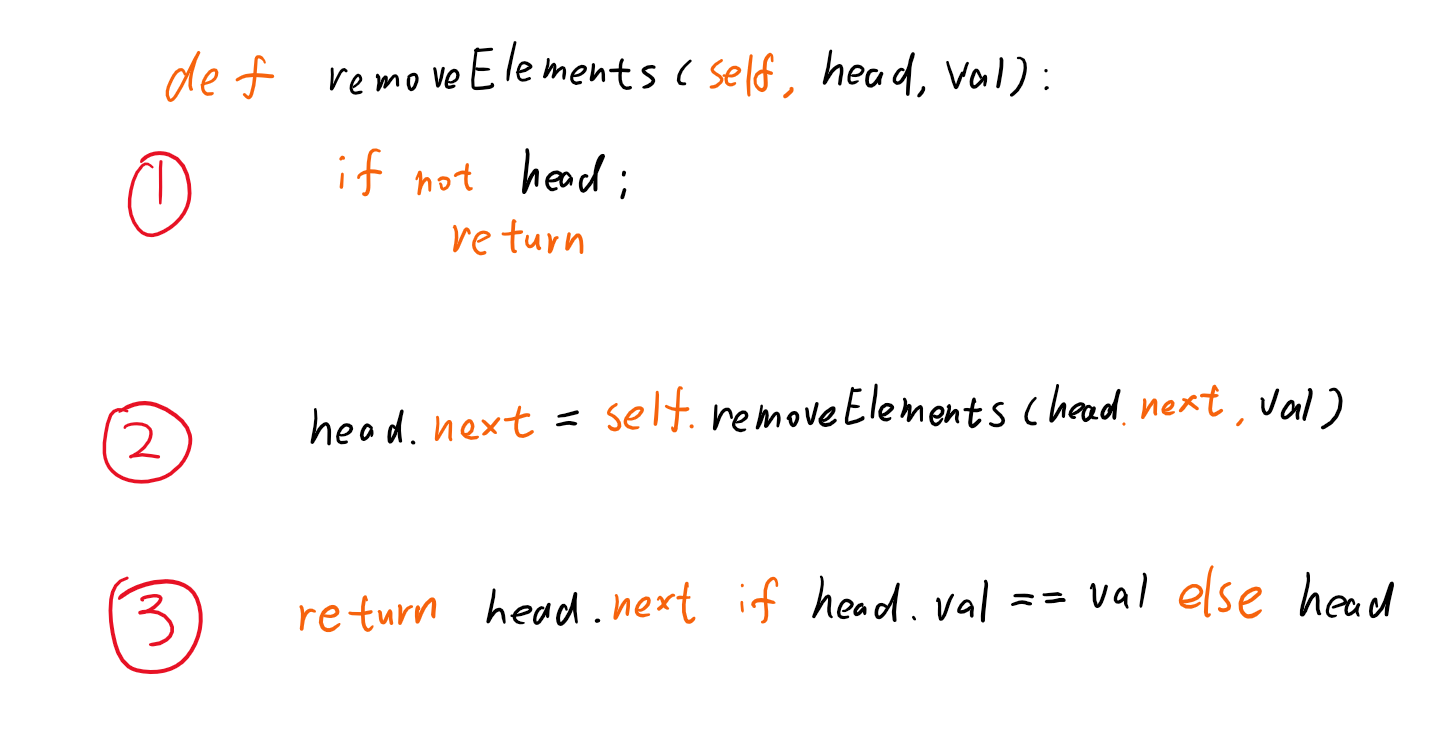 def removeElements(self, head, val):
① if not head;
return
② head.next = self.removeElements(head.next, val)
③ return head.next if head.val == val else head